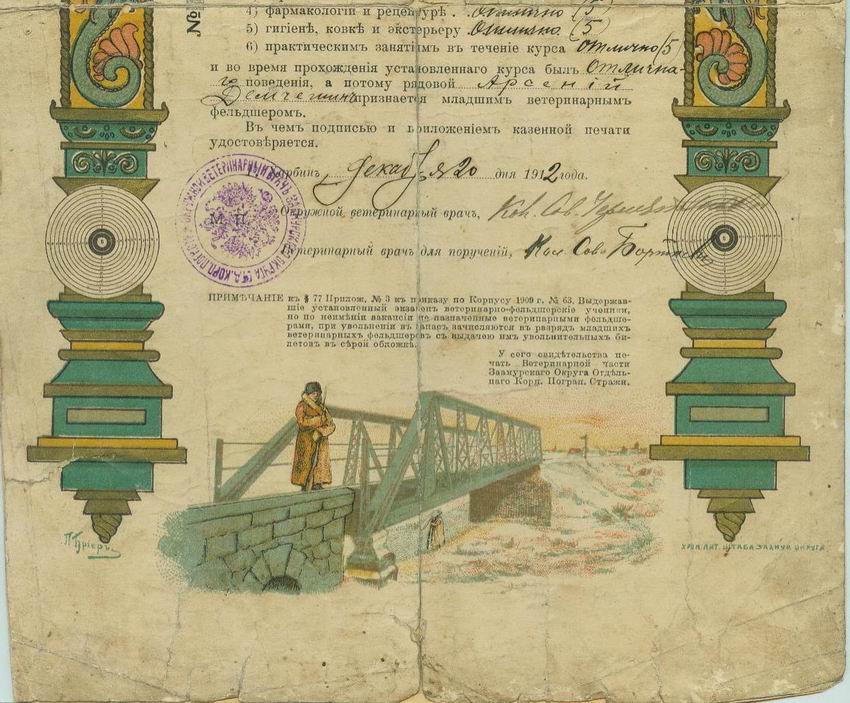 №
4) фармакологіи и рецептурѣ . отлично (5)
5) гигіенѣ, ковкѣ и экстерьеру отлично (5)
6) практическимъ занятіямъ въ теченіе курса отлично (5
и во время прохожденія установленнаго курса былъ отлична-
го поведенія, а потому рядовой Арсеній
признается младшимъ ветеринарнымъ
фельдшеромъ.
Въ чемъ подписью и приложеніемъ казенной печати
удостовѣряется.
Харбинъ, декабря 20 дня 1912 года.
М. П. Окружной ветеринарный врачъ, Кол. Сов.
Ветеринарный врачъ для порученій, Кол. Сов.
ПРИМѢЧАНІЕ къ § 77 Прилож. № 3 къ приказу по Корпусу 1909 г. № 63. Выдержав-
шіе установленный экзаменъ ветеринарно-фельдшерскіе ученики,
но по неимѣнію вакансій не назначенные ветеринарными фельдше-
рами, при увольненіи въ запасъ зачисляются въ разрядъ младшихъ
ветеринарныхъ фельдшеровъ съ выдачею имъ увольнительныхъ би-
летовъ въ сѣрой обложкѣ.
У сего свидѣтельства пе-
чать Ветеринарной части
Заамурскаго Округа Отдѣль-
наго Корп. Погран. Стражи.
ХРОМ. ЛИТ. ШТАБА ЗААМУР. ОКРУГА